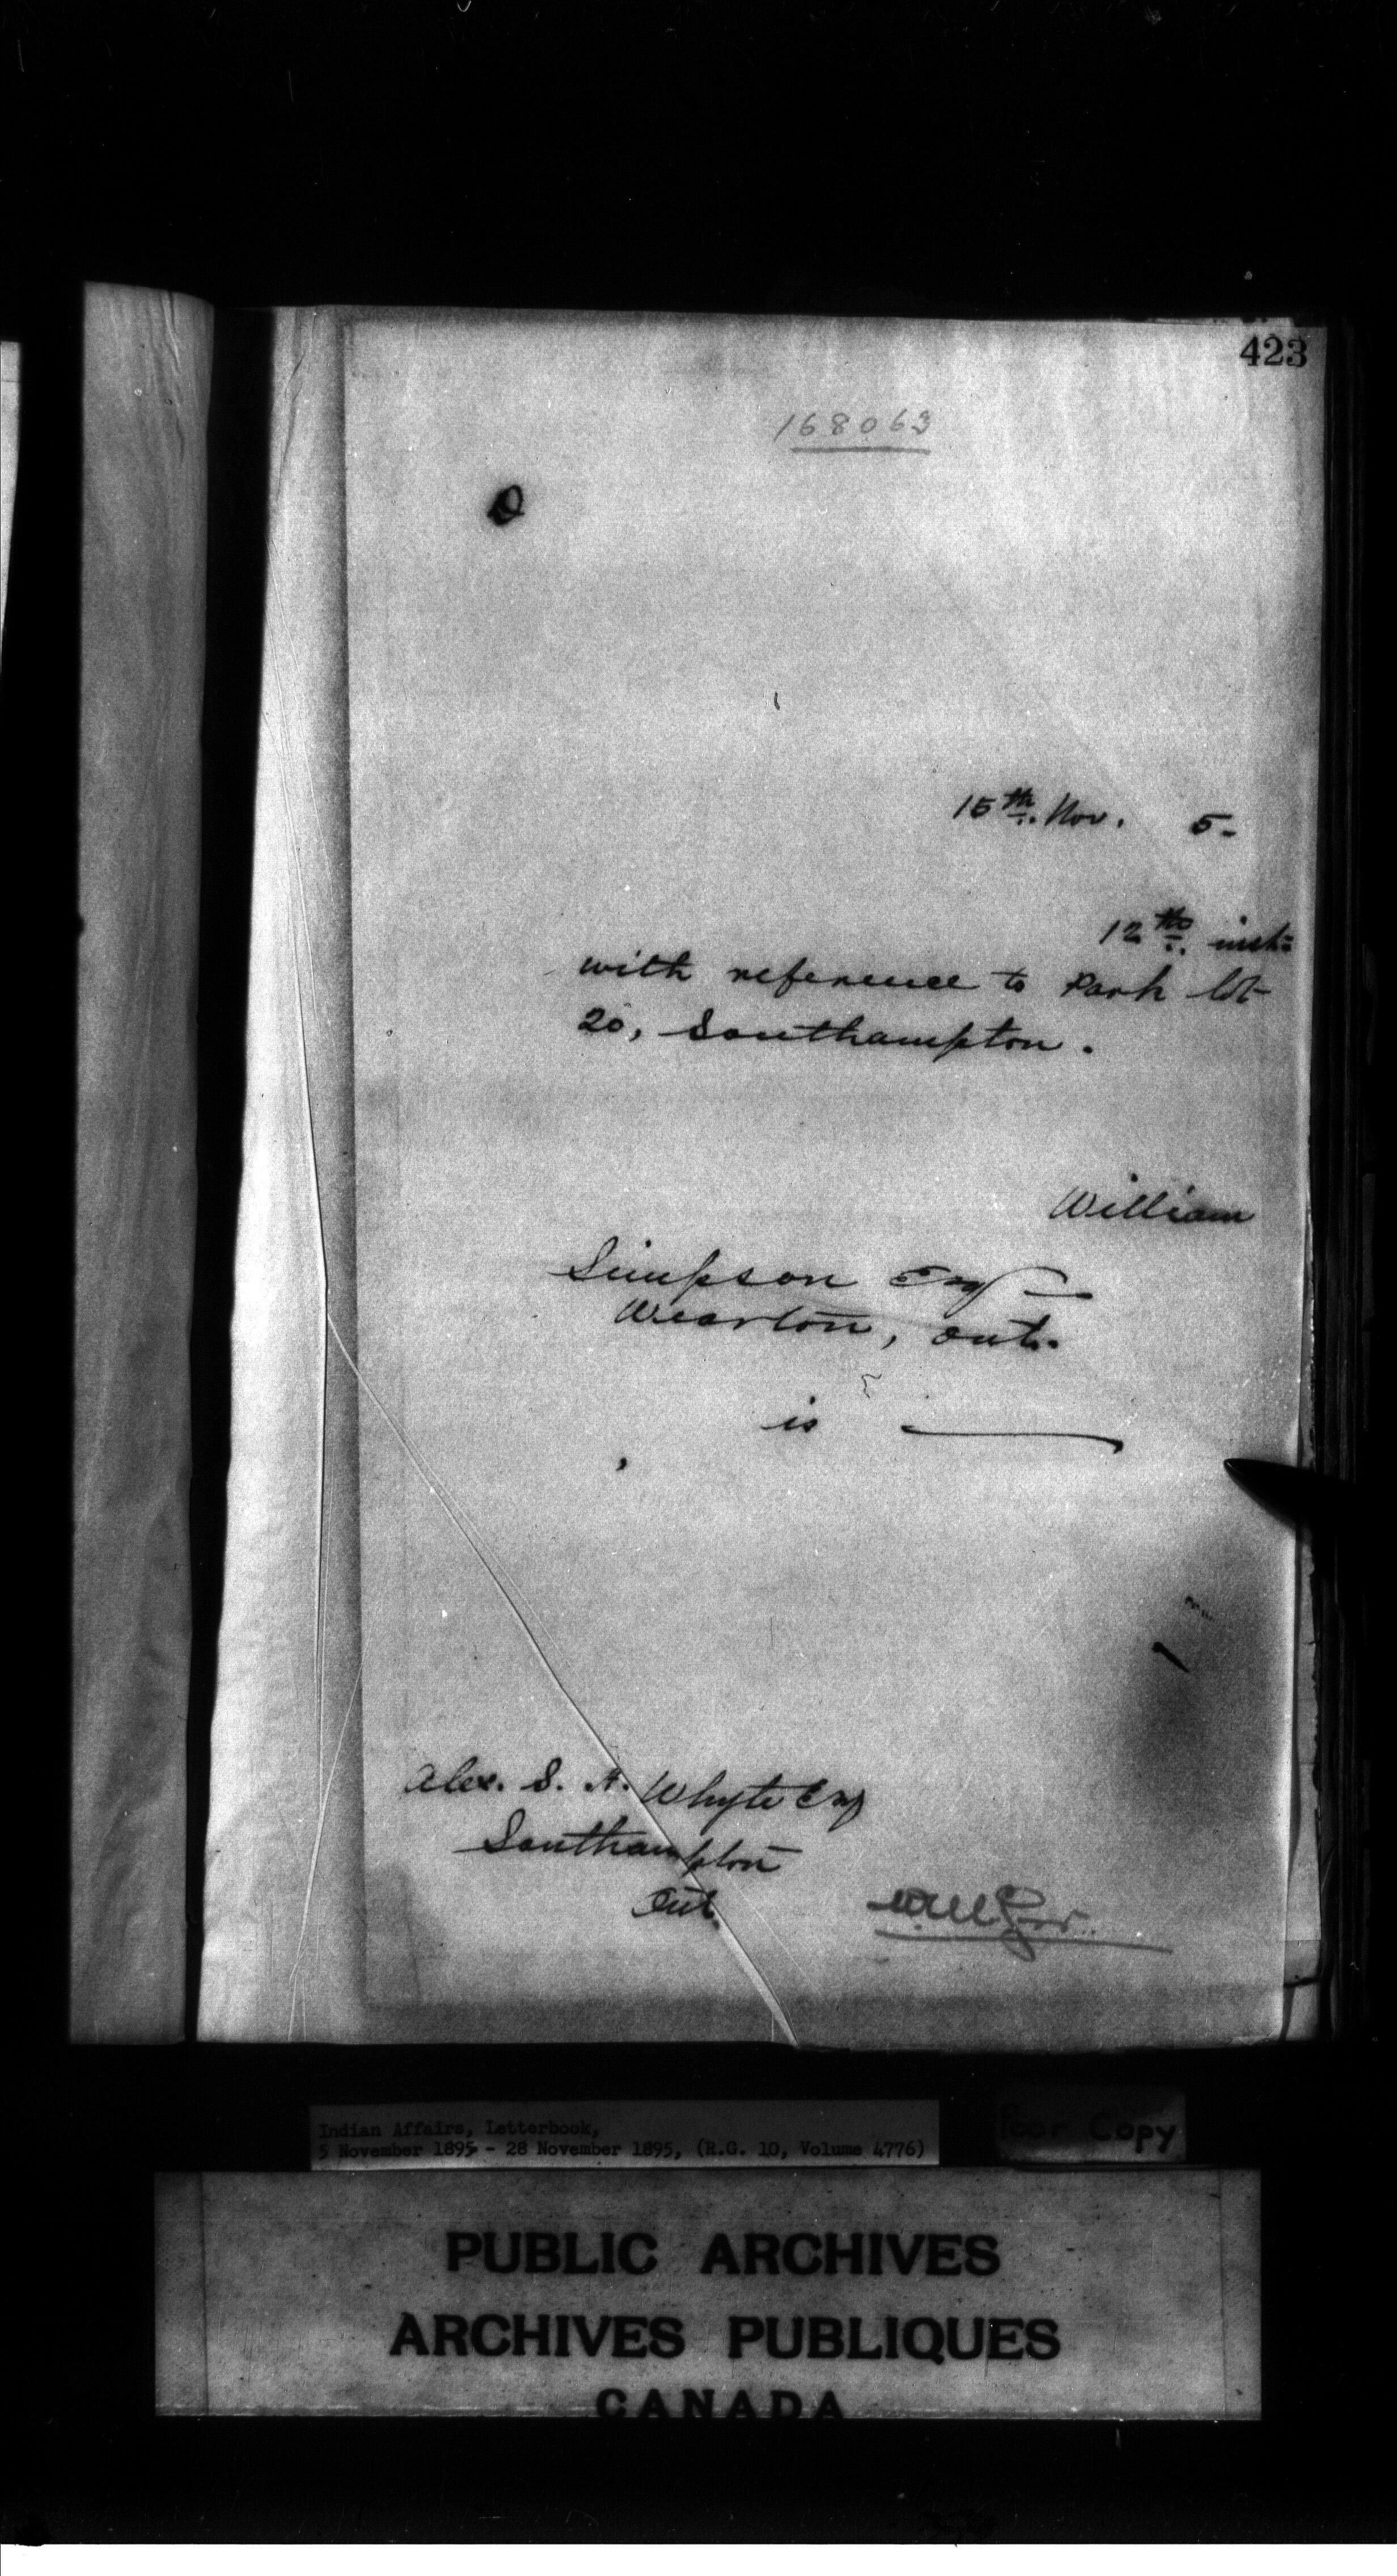 423
168063
15th. Nov. 5-
12th. inst:
with reference to Park lot
20, Southampton.
William
Simpson Esq
Wiarton, Ont.
is
Alex. S. A. Whyte Esq
Southampton
Ont.
Indian Affairs, Letterbook,
5 November 1895 - 28 November 1895, (R.G. 10, Volume 4776)
Poor Copy
PUBLIC ARCHIVES
ARCHIVES PUBLIQUES
CANADA